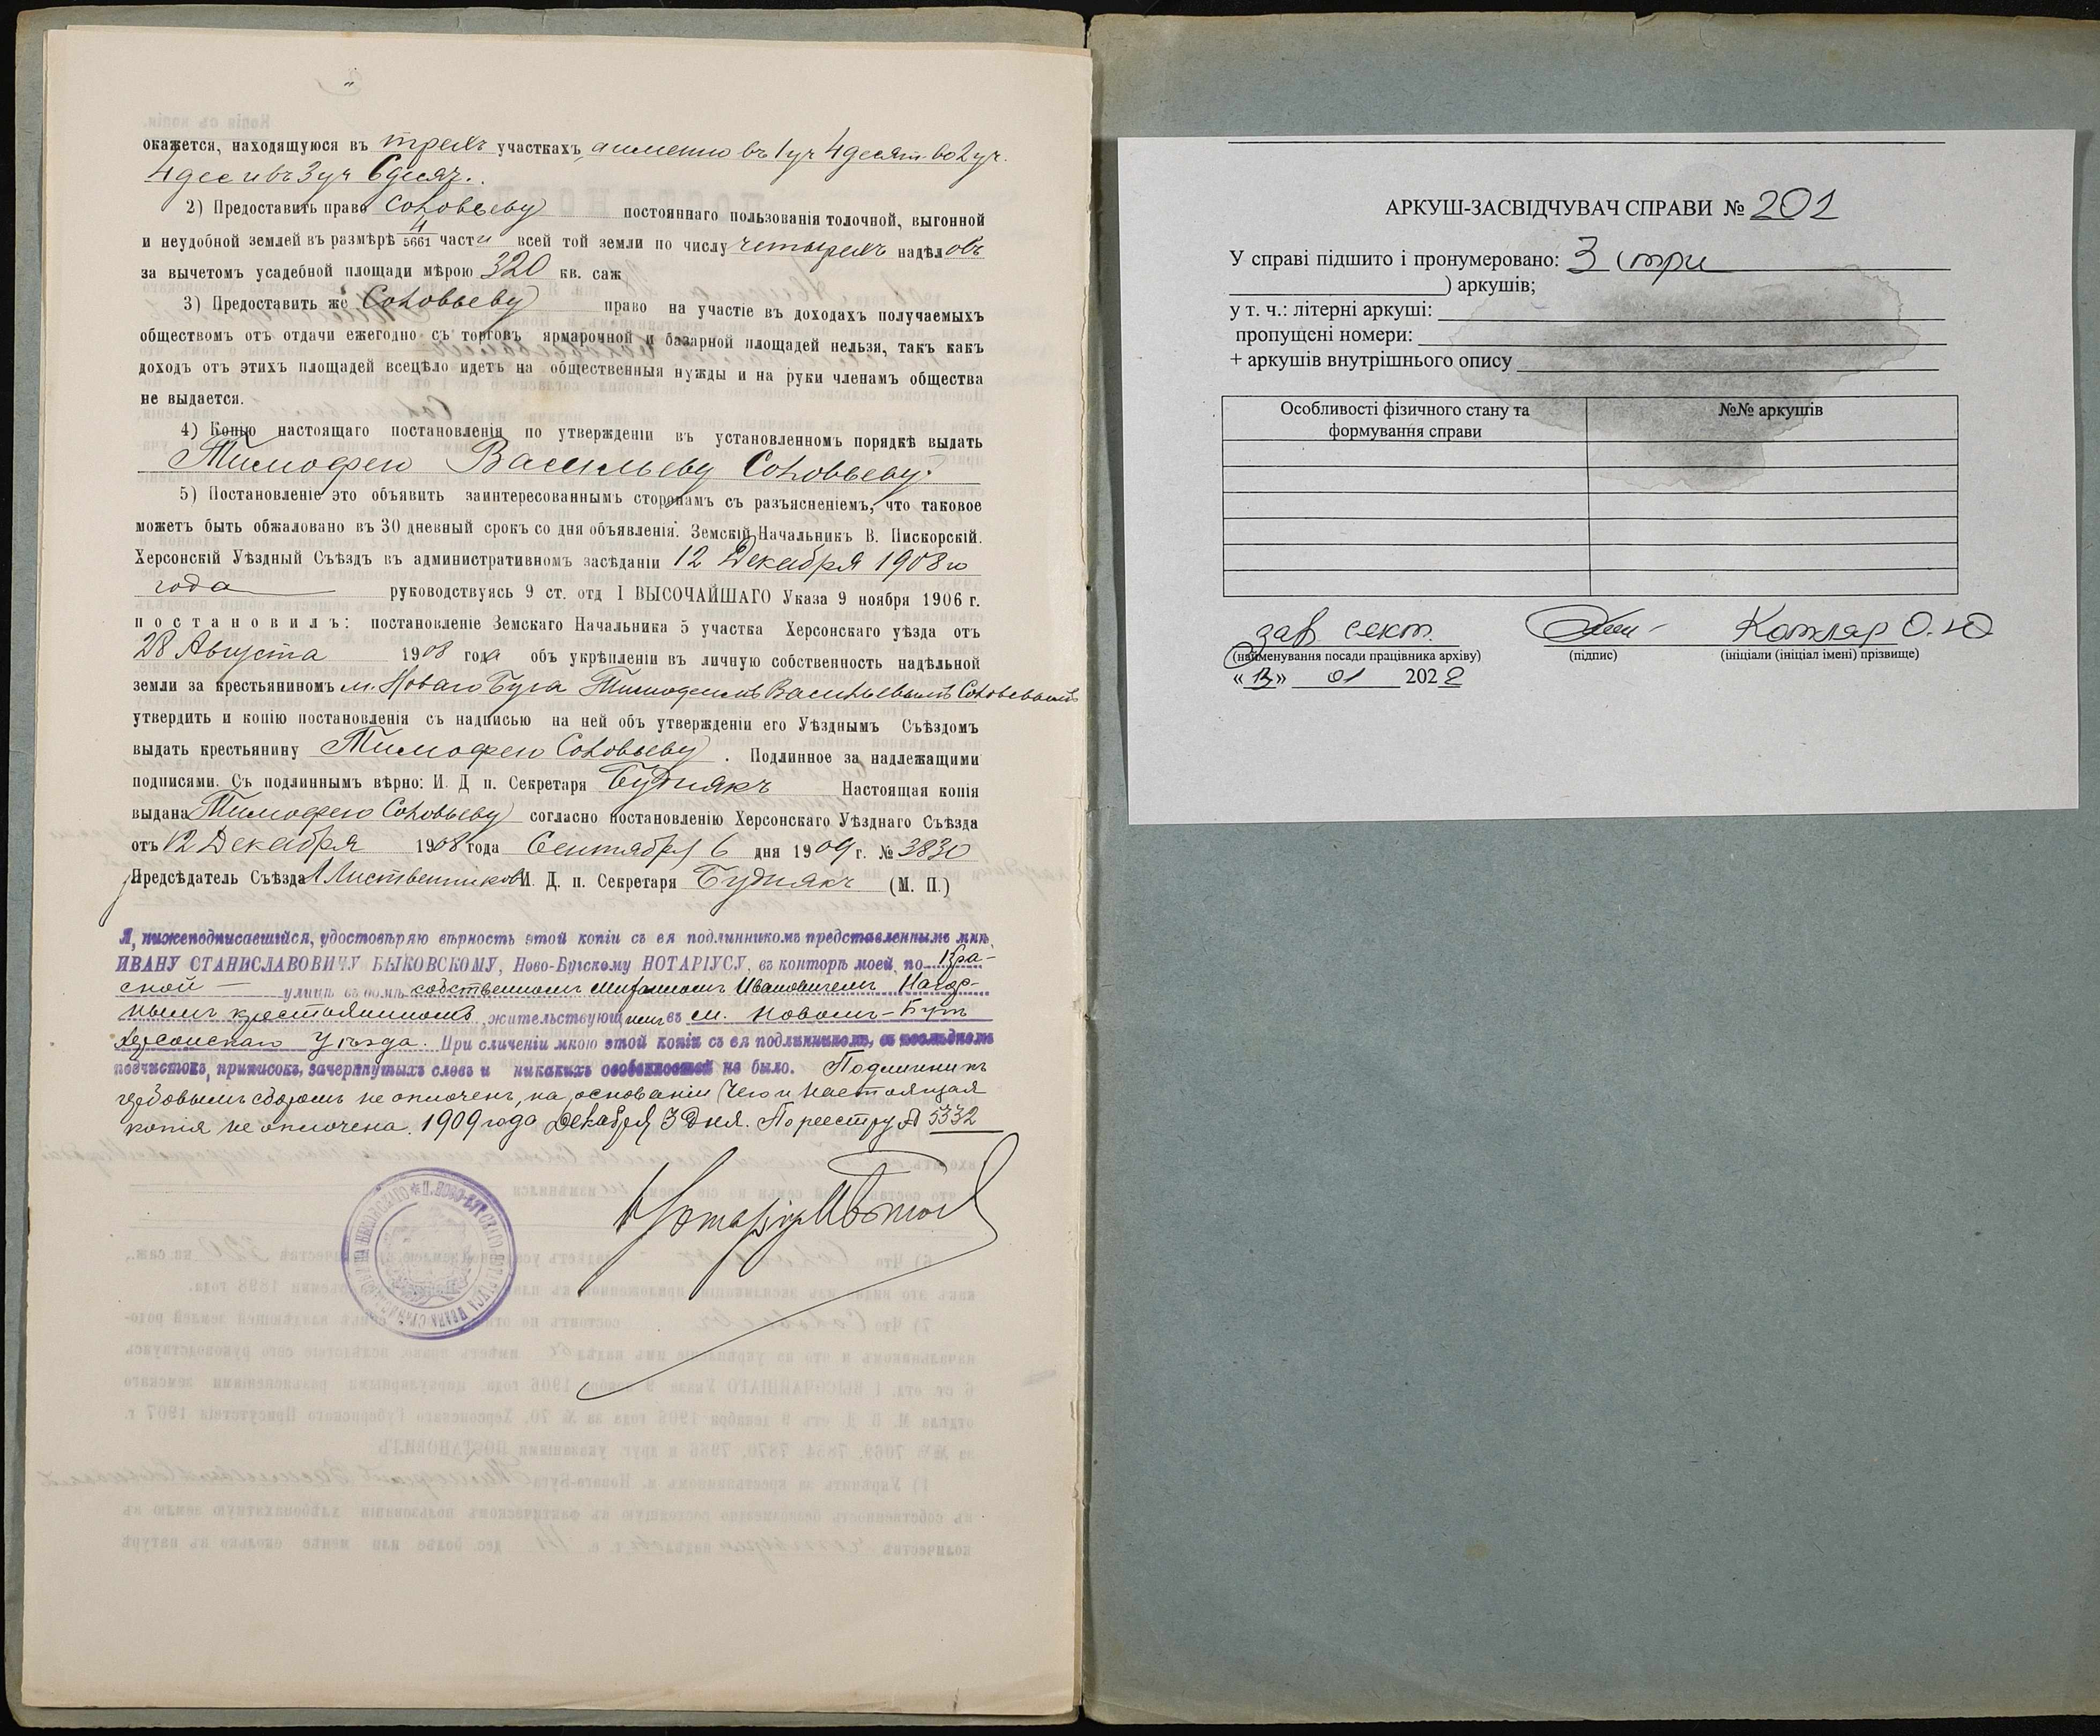 окажется, находящуюся въ трехъ участкахъ, а именно въ 1 уч 4 десят. во 2 уч.
4 дес и въ 3 уч 6 десят.
2) Предоставить право Соловьеву постояннаго пользованія толочной, выгонной
и неудобной землей въ размѣрѣ 4/5661 части всей той земли по числу четырехъ надѣловъ
за вычетомъ усадебной площади мѣрою 320 кв. саж
3) Предоставить же Соловьеву право на участіе въ доходахъ получаемыхъ
обществомъ отъ отдачи ежегодно съ торговъ ярмарочной и базарной площадей нельзя, такъ какъ
доходъ отъ этихъ площадей всецѣло идетъ на общественныя нужды и на руки членамъ общества
не выдается.
4) Копію настоящаго постановленія по утвержденіи въ установленномъ порядкѣ выдать
Тимофею Васильеву Соловьеву.
5) Постановленіе это объявить заинтересованнымъ сторонамъ съ разъясненіемъ, что таковое
можетъ быть обжаловано въ 30 дневный срокъ со дня объявленія. Земскій Начальникъ В. Пискорскій.
Херсонскій Уѣздный Съѣздъ въ административномъ засѣданіи 12 Декабря 1908 го
года руководствуясь 9 ст. отд I ВЫСОЧАЙШАГО Указа 9 ноября 1906 г.
постановилъ: постановленіе Земскаго Начальника 5 участка Херсонскаго уѣзда отъ
28 Августа 1908 года объ укрѣпленіи въ личную собственность надѣльной
земли за крестьяниномъ м. Новаго Буга Тимофеемъ Васильевымъ Соловьевымъ
утвердить и копію постановленія съ надписью на ней объ утвержденіи его Уѣзднымъ Съѣздомъ
выдать крестьянину Тимофею Соловьеву. Подлинное за надлежащими
подписями. Съ подлиннымъ вѣрно: И. Д п. Секретаря Будпякъ Настоящая копія
выдана Тимофею Соловьеву согласно постановленію Херсонскаго Уѣзднаго Съѣзда
отъ 12 Декабря 1908 года Сентября 6 дня 1909 г. № 3830
Предсѣдатель Съѣзда Лиственниковъ И. Д. п. Секретаря Будпякъ (М. П.)
Я, нижеподписавшійся, удостовѣряю вѣрность этой копіи съ ея подлинникомъ представленнымъ мнѣ,
ИВАНУ СТАНИСЛАВОВИЧУ БЫКОВСКОМУ, Ново-Бугскому НОТАРІУСУ, въ конторѣ моей, по Кра-
сной улицѣ въ домѣ собственномъ Ивановичемъ
крестьяниномъ, жительствующимъ въ м. Новомъ-Бугѣ
Херсонскаго Уѣзда. При сличеніи мною этой копіи съ ея подлинникомъ, въ послѣднемъ
подчистокъ, приписокъ, зачеркнутыхъ словъ и никакихъ особенностей не было. Подлинникъ
гербовымъ сборомъ не оплоченъ, на основаніи чего и настоящая
копія не оплочена. 1909 года Декабря 3 дня. По реестру № 5332
АРКУШ-ЗАСВІДЧУВАЧ СПРАВИ № 201
У справі підшито і пронумеровано: 3 (три
) аркушів;
у т. ч.: літерні аркуші:
пропущені номери:
+ аркушів внутрішнього опису
Особливості фізичного стану та формування справи
№№ аркушів
зав. сект. Котляр О. Ю
(найменування посади працівника архіву) (підпис) (ініціали (ініціал імені) прізвище)
«13» 01 2022